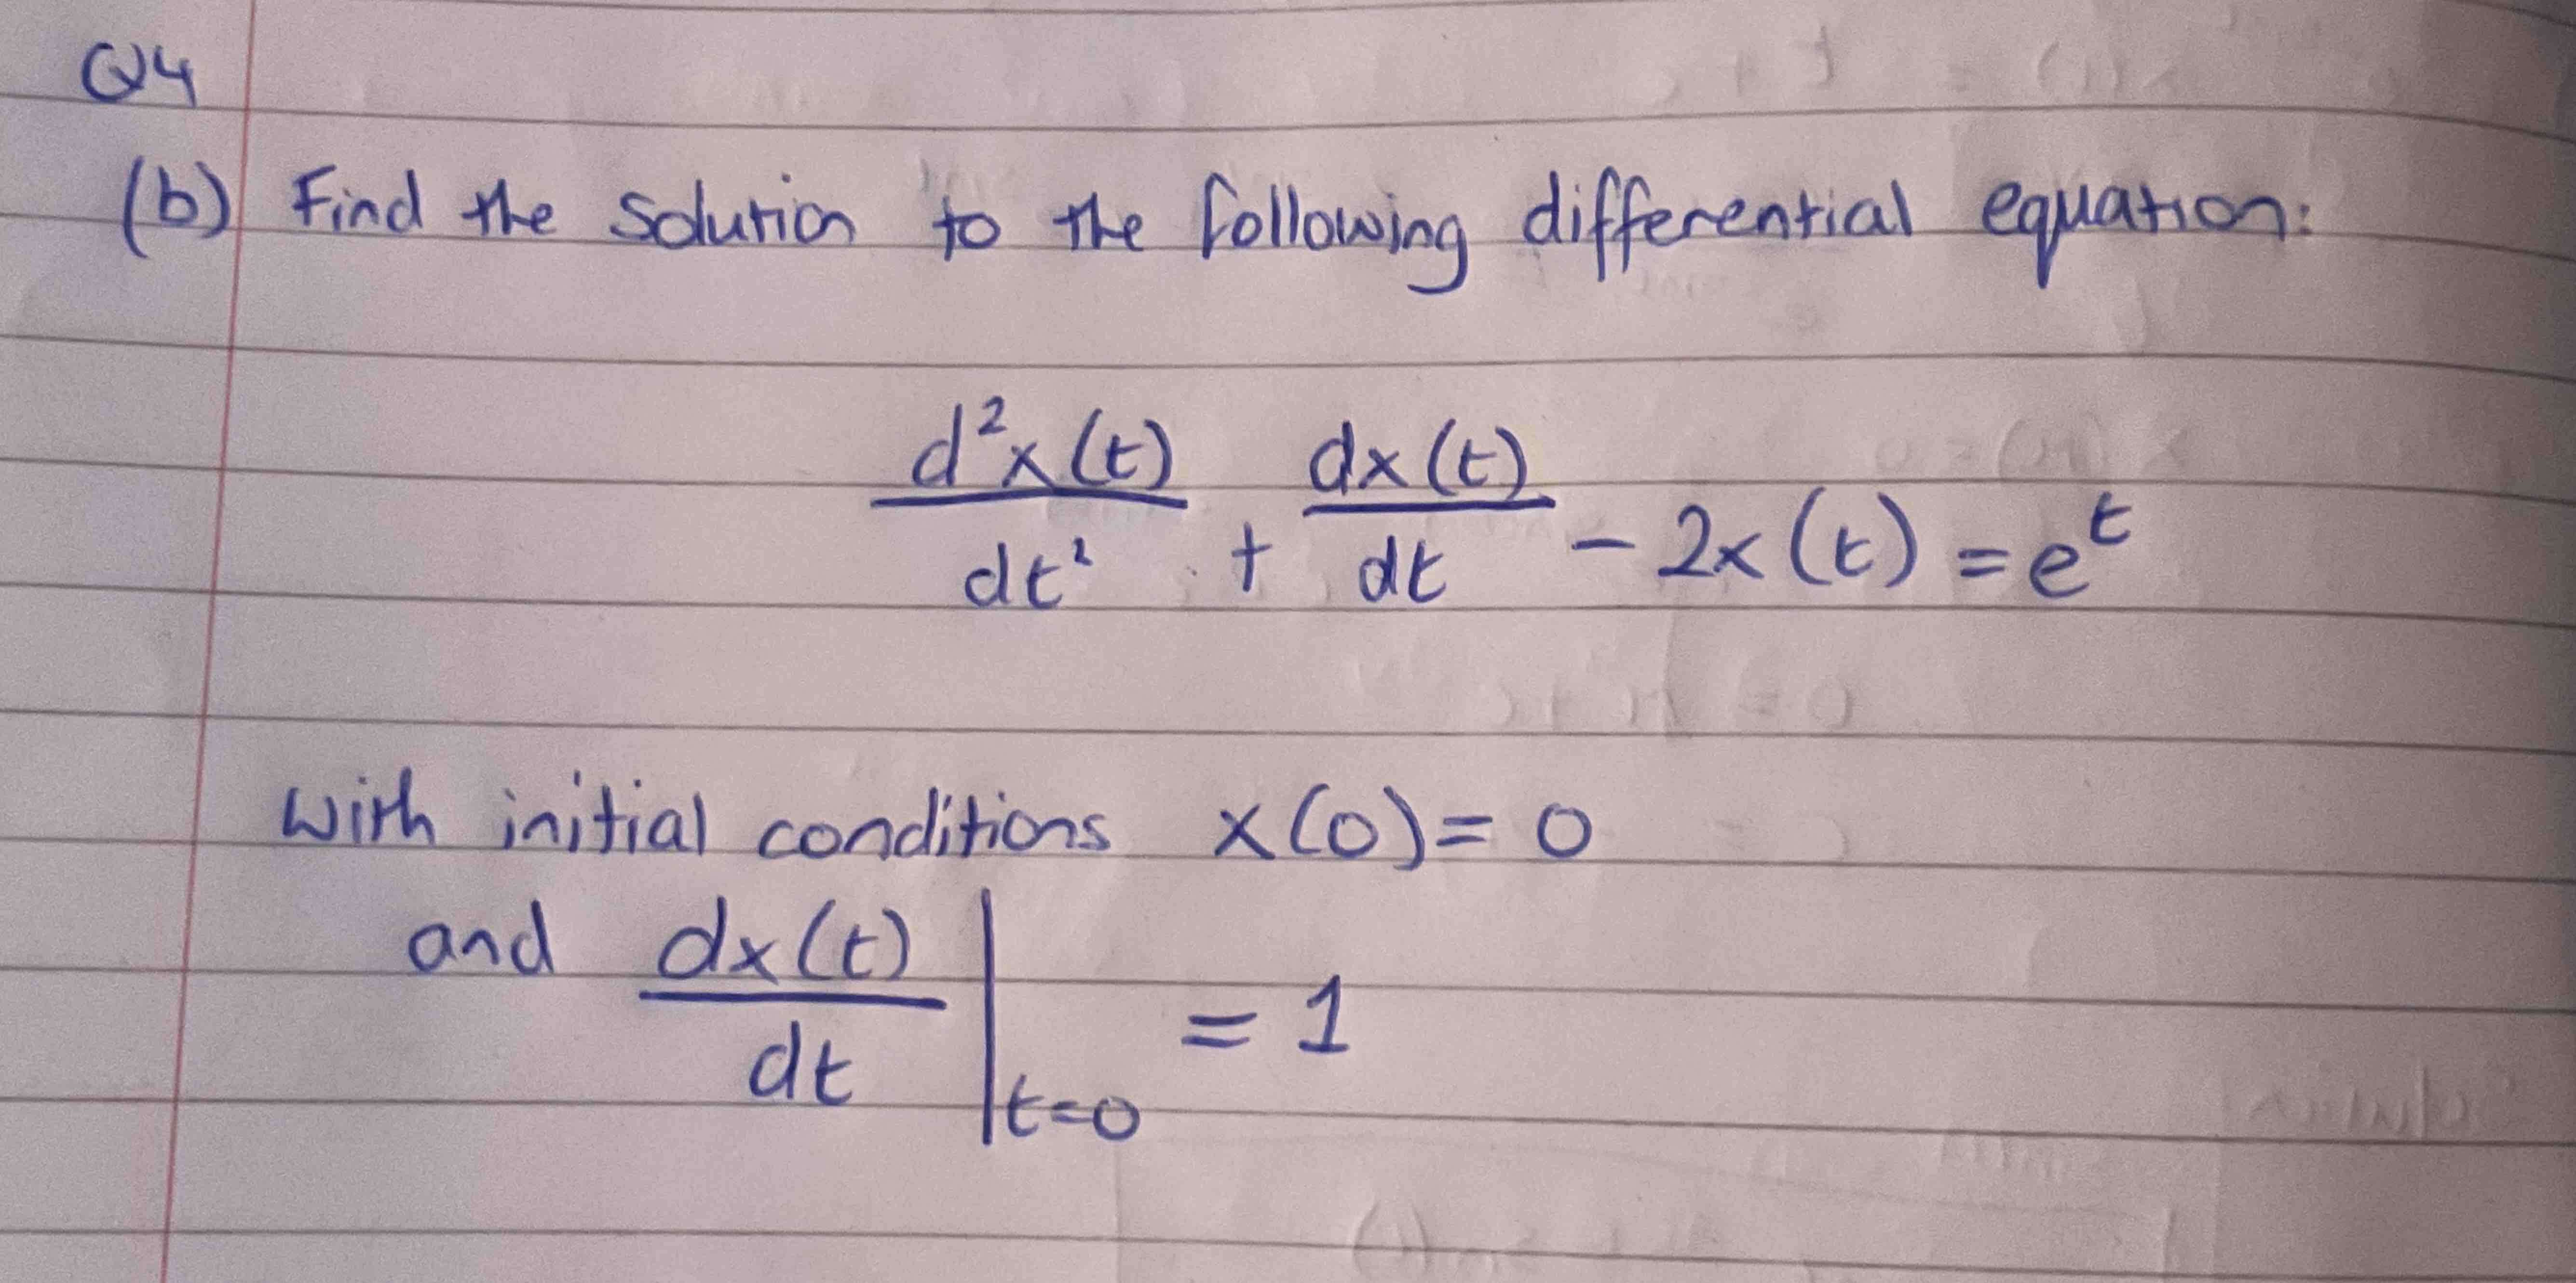 Q4
(b) Find the solution to the following differential equation:
d²x(t)/dt² + dx(t)/dt - 2x(t) = e^t
with initial conditions x(0) = 0
and dx(t)/dt |t=0 = 1